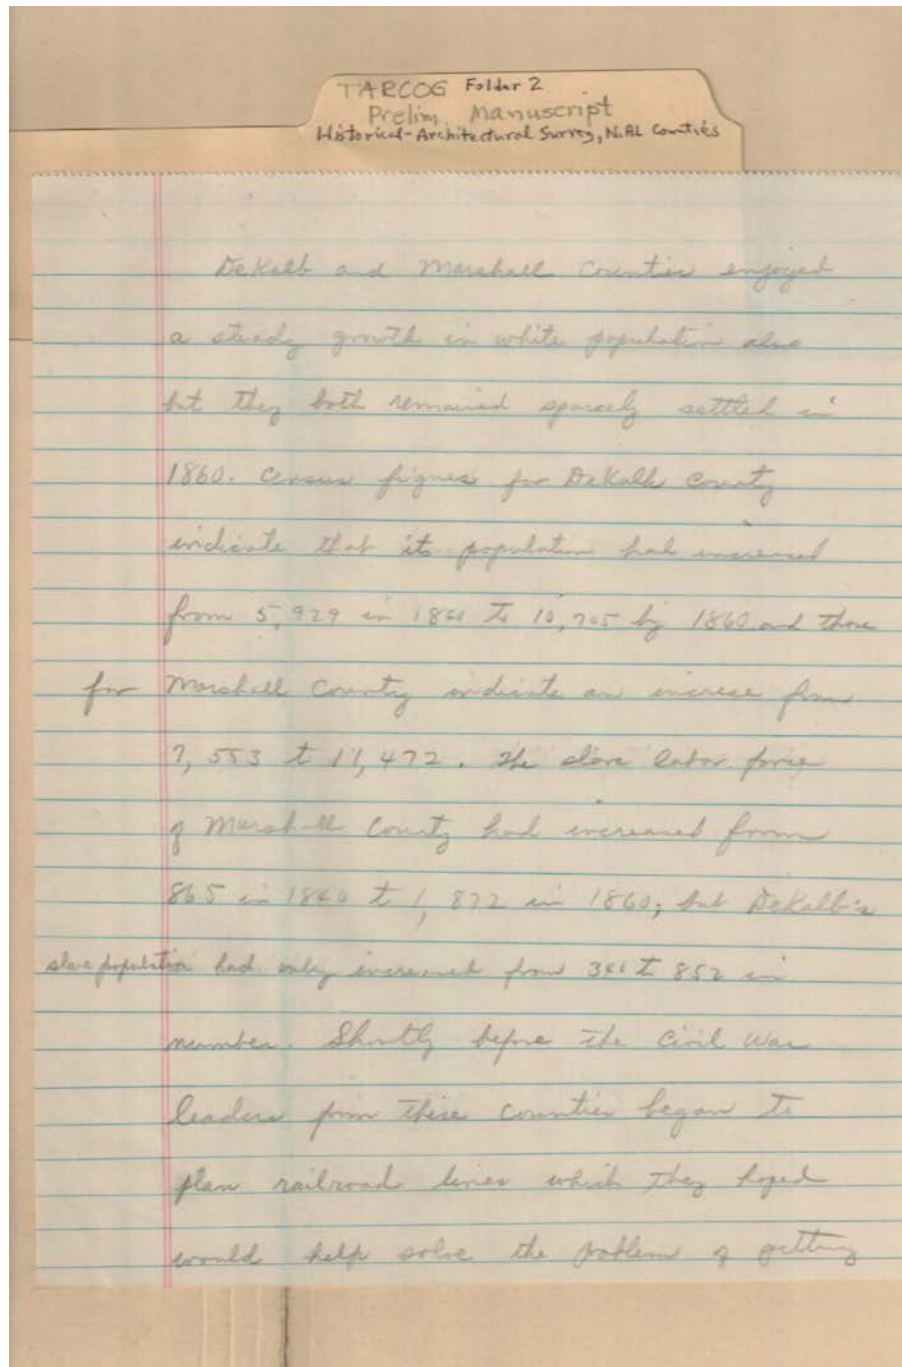 TARCOG Folder 2
Prelim. Manuscript
Historical-Architectural Survey, N. AL Counties
DeKalb and Marshall Counties enjoyed
a steady growth in white population also
but they both remained sparcely settled in
1860. Census figures for DeKalb County
indicate that its population had increased
from 5,929 in 1840 to 10,705 by 1860 and those
for Marshall County indicate an increase from
7,553 to 11,472. The slave labor force
of Marshall County had increased from
865 in 1840 to 1,872 in 1860; but DeKalb's
slave population had only increased from 341 to 852 in
number. Shortly before the Civil War
leaders from these counties began to
plan railroad lines which they hoped
would help solve the problem of getting